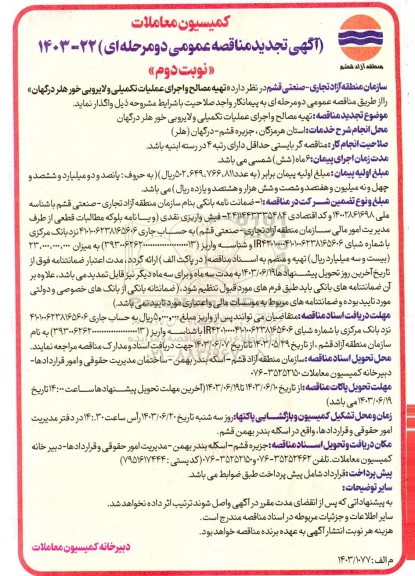 کمیسیون معاملات
(آگهی تجدید مناقصه عمومی دو مرحله ای) ۲۲- ۱۴۰۳
«نوبت دوم»
منطقه آزاد قشم
سازمان منطقه آزاد تجاری-صنعتی قشم در نظر دارد «تهیه مصالح و اجرای عملیات تکمیلی و لایروبی خور هلر درگهان»
را از طریق مناقصه عمومی دو مرحله ای به پیمانکار واجد صلاحیت با شرایط مشروحه ذیل واگذار نماید.
موضوع تجدید مناقصه: تهیه مصالح و اجرای عملیات تکمیلی و لایروبی خور هلر درگهان
محل انجام شرح خدمات: استان هرمزگان، جزیره قشم-درگهان (هلر)
صلاحیت انجام کار: مناقصه گر بایستی حداقل دارای رتبه ۴ در رسته ابنیه باشد.
مدت زمان اجرای پیمان: ۶ ماه (شش) شمسی می باشد.
مبلغ اولیه پیمان: مبلغ اولیه پیمان برابر (به عدد ۵۰۲,۶۴۹,۷۶۶,۸۱۱ ریال) (به حروف: پانصد و دو میلیارد و ششصد و
چهل و نه میلیون و هفتصد و شصت و شش هزار و هشتصد و یازده ریال) می باشد.
مبلغ و نوع تضمین شرکت در مناقصه: ۱- ضمانت نامه بانکی بنام سازمان منطقه آزاد تجاری-صنعتی قشم به شناسه
ملی ۱۴۰۰۲۸۶۱۶۹۸ و کد اقتصادی ۴۱۱۴۴۳۳۳۵۴۸۴- فیش واریزی نقدی (و یا نامه بلوکه مطالبات قطعی از طرف
مدیریت امور مالی سازمان منطقه آزاد تجاری-صنعتی قشم) به حساب جاری ۴۰۰۱۰۰۶۲۳۸۱۶۵۶۰۶ نزد بانک مرکزی
(بیست و سه میلیارد ریال) تهیه و منضم به اسناد مناقصه (در پاکت الف) ارائه گردد، مدت اعتبار ضمانتنامه فوق از
تاریخ آخرین روز تحویل پیشنهادها ۱۴۰۳/۰۶/۱۹ به مدت سه ماه و برای سه ماه دیگر نیز قابل تمدید می باشد، علاوه بر
آن ضمانتنامه های بانکی باید طبق فرم های مورد قبول تنظیم شود. (ضمانتنامه بانکی از بانک های خصوصی و دولتی
مورد تایید بوده و ضمانتنامه های مربوط به موسسات مالی و اعتباری مورد تایید نمی باشد).
مهلت دریافت اسناد مناقصه: متقاضیان می توانند پس از واریز مبلغ ۵,۰۰۰,۰۰۰ ریال به حساب جاری ۴۰۰۱۰۰۶۲۳۸۱۶۵۶۰۶
سازمان منطقه آزاد قشم، از تاریخ ۱۴۰۳/۰۵/۲۹ تا تاریخ ۱۴۰۳/۰۶/۰۷ جهت دریافت اسناد و مدارک مناقصه مراجعه نمایند.
محل تحویل اسناد مناقصه: سازمان منطقه آزاد قشم-اسکله بهمن-ساختمان مدیریت حقوقی و امور قراردادها-
دبیرخانه کمیسیون معاملات ۳۵۲۵۲۱۵۰-۰۷۶
مهلت تحویل پاکات مناقصه: از تاریخ ۱۴۰۳/۰۶/۱۰ تا ۱۴۰۳/۰۶/۱۹ (آخرین مهلت تحویل پیشنهادها ساعت ۱۴:۰۰ تاریخ
۱۴۰۳/۰۶/۱۹ می باشد)
زمان و محل تشکیل کمیسیون و بازگشایی پاکتها: روز سه شنبه تاریخ ۱۴۰۳/۰۶/۲۰ رأس ساعت ۱۴:۳۰ در دفتر مدیریت
امور حقوقی و قراردادها، واقع در اسکله بندر بهمن قشم.
مکان دریافت و تحویل اسناد مناقصه: جزیره قشم-اسکله بندر بهمن-مدیریت امور حقوقی و قراردادها-دبیر خانه
کمیسیون معاملات. تلفن: ۳۵۲۵۲۴۶۲-۰۷۶ و ۳۵۲۵۲۱۵۰-۰۷۶ (کد پستی: ۷۹۵۱۶۱۷۴۴۴)
پیش پرداخت: قرارداد شامل پیش پرداخت طبق ضوابط می باشد.
سایر توضیحات:
به پیشنهاداتی که پس از انقضای مدت مقرر در آگهی واصل شوند ترتیب اثر داده نخواهد شد.
سایر اطلاعات و جزئیات مربوطه در اسناد مناقصه مندرج است.
هزینه هر نوبت انتشار آگهی به عهده برنده مناقصه خواهد بود.
دبیرخانه کمیسیون معاملات
م الف: ۱۴۰۳/۱۰۷۷